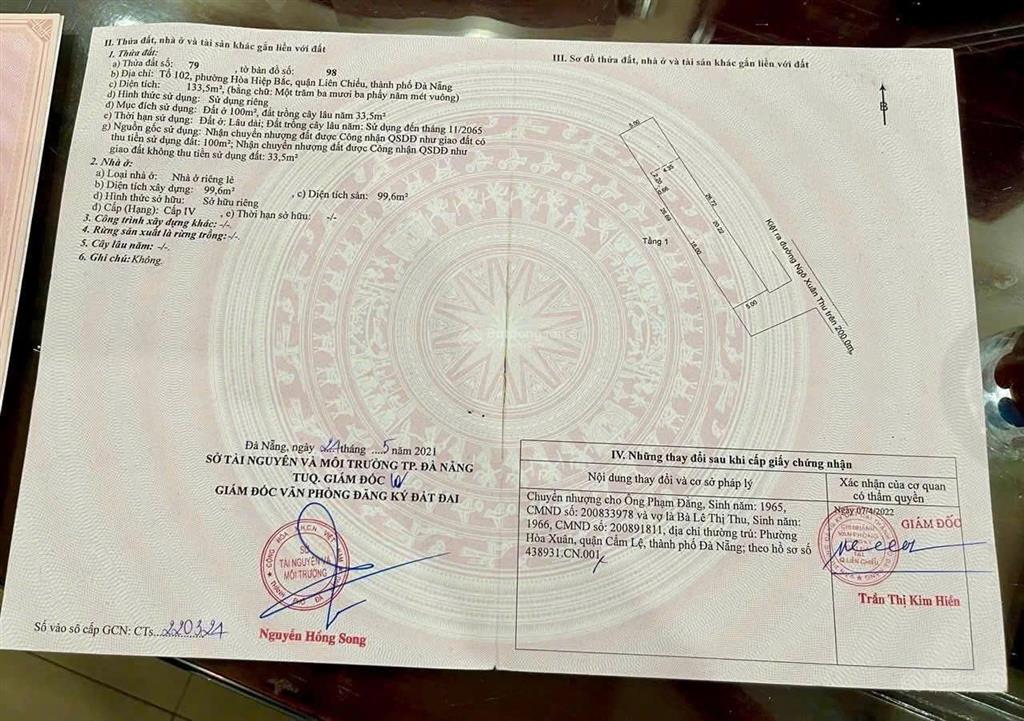 II. Thửa đất, nhà ở và tài sản khác gắn liền với đất
1. Thửa đất:
a) Thửa đất số: 79 , tờ bản đồ số: 98
b) Địa chỉ: Tổ 102, phường Hòa Hiệp Bắc, quận Liên Chiểu, thành phố Đà Nẵng
c) Diện tích: 133,5m², (bằng chữ: Một trăm ba mươi ba phẩy năm mét vuông)
d) Hình thức sử dụng: Sử dụng riêng
đ) Mục đích sử dụng: Đất ở 100m², đất trồng cây lâu năm 33,5m²
e) Thời hạn sử dụng: Đất ở: Lâu dài; Đất trồng cây lâu năm: Sử dụng đến tháng 11/2065
g) Nguồn gốc sử dụng: Nhận chuyển nhượng đất được Công nhận QSDĐ như giao đất có
thu tiền sử dụng đất: 100m²; Nhận chuyển nhượng đất được Công nhận QSDĐ như
giao đất không thu tiền sử dụng đất: 33,5m²
2. Nhà ở:
a) Loại nhà ở: Nhà ở riêng lẻ
b) Diện tích xây dựng: 99,6m² , c) Diện tích sàn: 99,6m²
d) Hình thức sở hữu: Sở hữu riêng
đ) Cấp (Hạng): Cấp IV , e) Thời hạn sở hữu: -/-
3. Công trình xây dựng khác: -/-.
4. Rừng sản xuất là rừng trồng:-/-.
5. Cây lâu năm: -/-
6. Ghi chú: Không.
Đà Nẵng, ngày 21 tháng ....5 năm 2021
SỞ TÀI NGUYÊN VÀ MÔI TRƯỜNG TP. ĐÀ NẴNG
TUQ. GIÁM ĐỐC
GIÁM ĐỐC VĂN PHÒNG ĐĂNG KÝ ĐẤT ĐAI
SỞ
TÀI NGUYÊN VÀ
MÔI TRƯỜNG
Nguyễn Hồng Song
Số vào sổ cấp GCN: CTs...220321
III. Sơ đồ thửa đất, nhà ở và tài sản khác gắn liền với đất
B
5.00
4.20
2.20
0.66
26.72
20.22
26.69
18.00
Tầng 1
5.00
Kiệt ra đường Ngô Xuân Thu trên 200,0m.
IV. Những thay đổi sau khi cấp giấy chứng nhận
Nội dung thay đổi và cơ sở pháp lý
Xác nhận của cơ quan
có thẩm quyền
Chuyển nhượng cho Ông Phạm Đăng, Sinh năm: 1965,
CMND số: 200833978 và vợ là Bà Lê Thị Thu, Sinh năm:
1966, CMND số: 200891811, địa chỉ thường trú: Phường
Hòa Xuân, quận Cẩm Lệ, thành phố Đà Nẵng; theo hồ sơ số
438931.CN.001
Ngày 07/4/2022
GIÁM ĐỐC
CHI NHÁNH
VĂN PHÒNG
TẠI
Q.LIÊN CHIỂU
Trần Thị Kim Hiền
Batdongsan